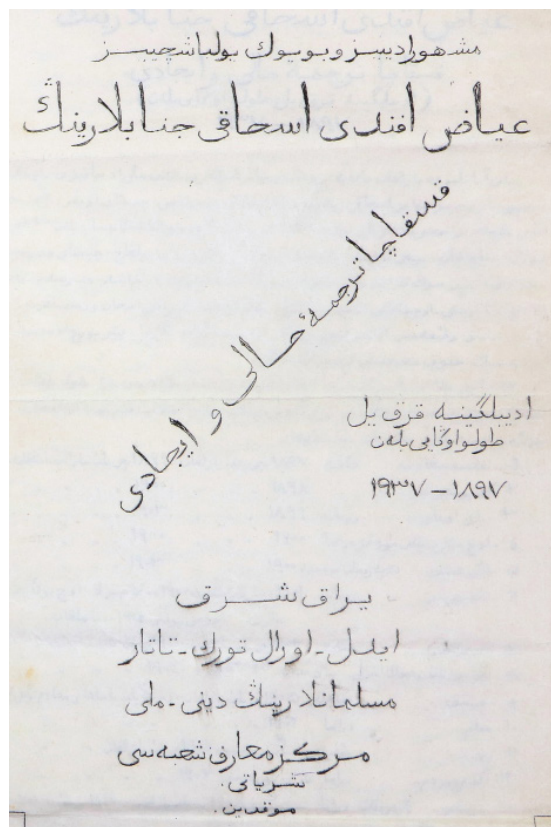 مشهور اديبز و بويوك يولباشچيبز
عياض افندى اسحاقى جنابلارينڭ
قسقاچا ترجمۀ حالى و ايجادى
اديبلگينه قرق يل
طولو اوڭايى بلەن
١٨٩٧ – ١٩٣٧
يراق شرق
ايدل - اورال تورك - تاتار
مسلمانلارينڭ دينى - ملى
مركز معارف شعبەسى
نشرياتى.
موقدين.